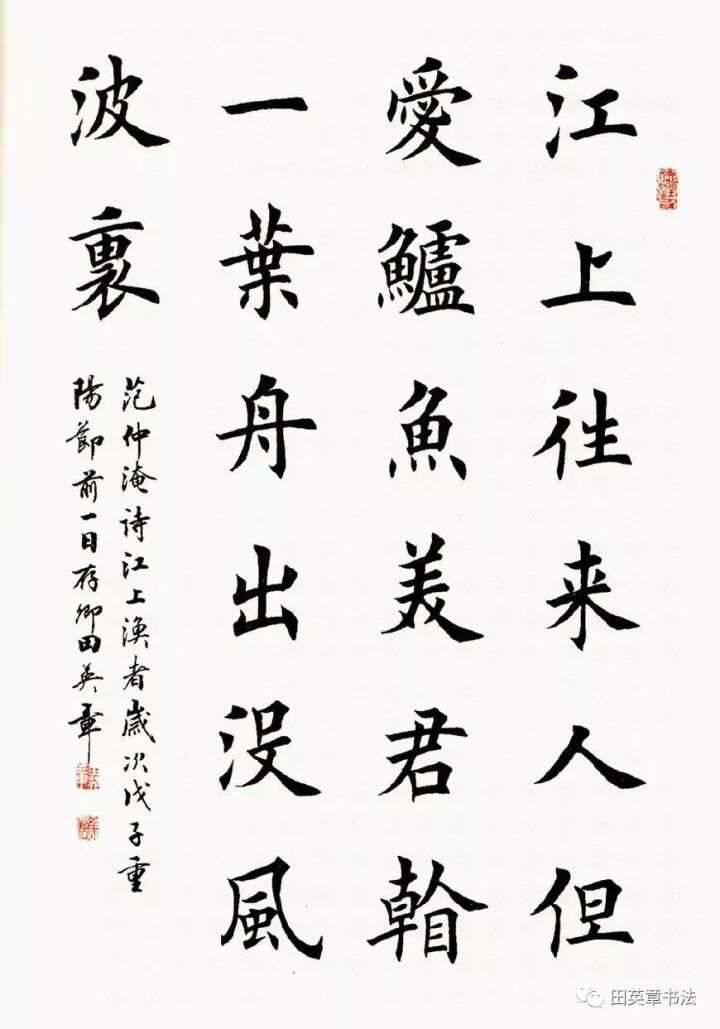 江上往来人但
愛鱸魚美君看
一葉舟出没風
波裏
范仲淹诗江上渔者歲次戊子重
陽節前一日存卿田英章
田英章书法